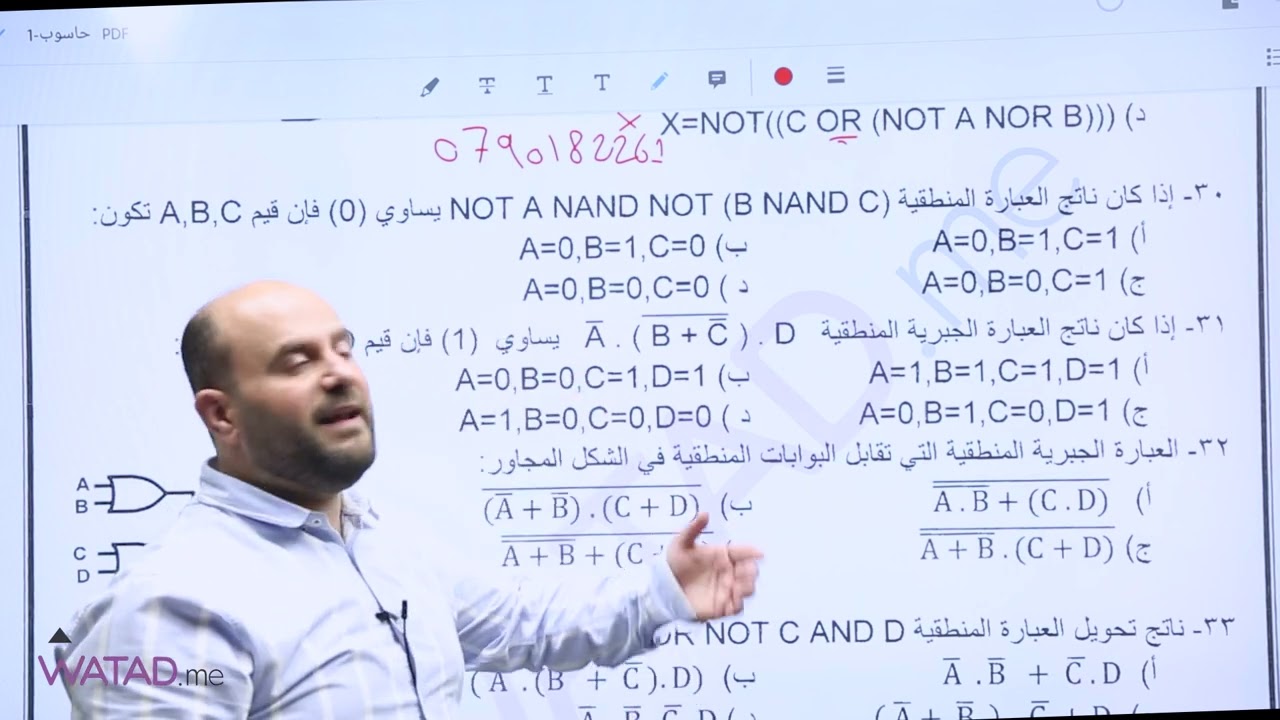 حاسوب-1 PDF
د) X=NOT((C OR (NOT A NOR B)))
x
0790182261
٣٠- إذا كان ناتج العبارة المنطقية NOT A NAND NOT (B NAND C) يساوي (0) فإن قيم A,B,C تكون:
أ) A=0,B=1,C=1 ب) A=0,B=1,C=0
ج) A=0,B=0,C=1 د) A=0,B=0,C=0
٣١- إذا كان ناتج العبارة الجبرية المنطقية A̅ . ( B + C̅ ) . D يساوي (1) فإن قيم
أ) A=1,B=1,C=1,D=1 ب) A=0,B=0,C=1,D=1
ج) A=0,B=1,C=0,D=1 د) A=1,B=0,C=0,D=0
٣٢- العبارة الجبرية المنطقية التي تقابل البوابات المنطقية في الشكل المجاور:
A
B
C
D
أ) A . B + (C . D) ب) (A̅ + B̅) . (C + D)
ج) A + B . (C + D) A + B + (C
٣٣- ناتج تحويل العبارة المنطقية OR NOT C AND D
أ) A̅ . B̅ + C̅ . D ب) ( A̅ . (B̅ + C̅).D)
WATAD.me